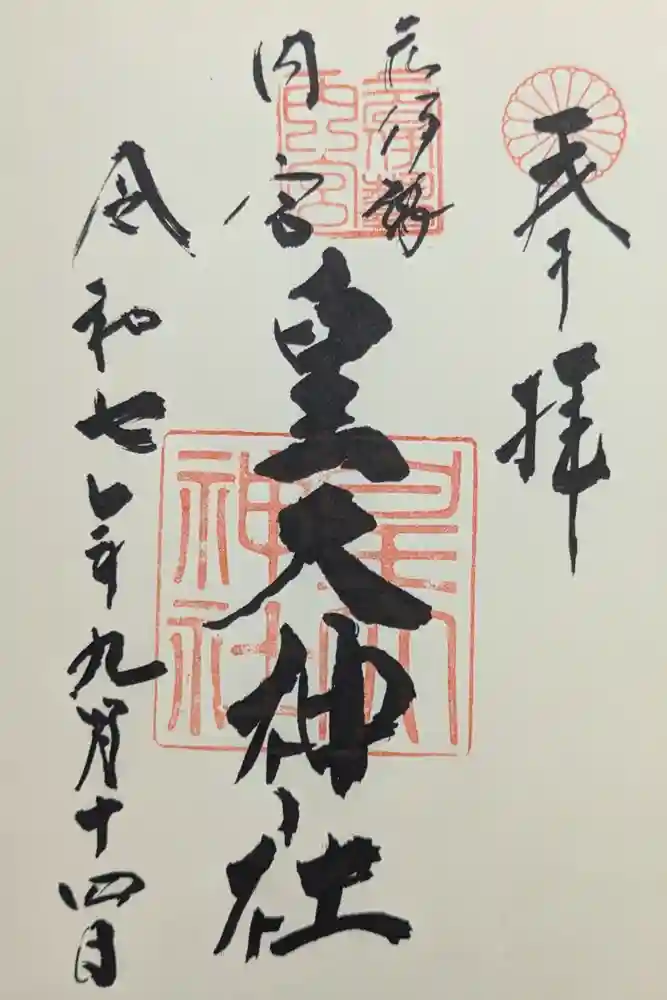 奉拝
元伊勢
内宮
皇大神社
令和七年九月十四日
皇大
神社